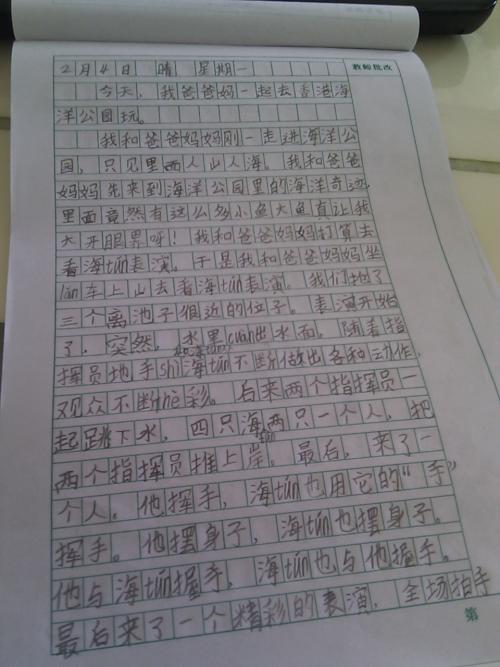 教师批改
2月4日 晴 星期一
今天,我爸爸妈一起去香港海
洋公园玩。
我和爸爸妈妈刚一走进海洋公
园,只见里面人山人海。我和爸爸
妈妈先来到海洋公园里的海洋奇迹,
里面竟然有这么多小鱼大鱼真让我
大开眼界呀!我和爸爸妈妈打算去
看海tún表演。于是我和爸爸妈妈坐
lǎn车上山去看海tún表演。我们找了
三个离池子很近的位子。表演开始
了,突然,水里cuān出水面。随着指
挥员地手shì海tún不断做出各种动作,
观众不断hè彩。后来两个指挥员一
起跳下水,四只海两只一个人,把
tún
两个指挥员推上岸。最后,来了一
个人。他挥手,海tún也用它的“手”
挥手。他摆身子,海tún也摆身子。
他与海tún握手,海tún也与他握手。
最后来了一个精彩的表演,全场拍手
第